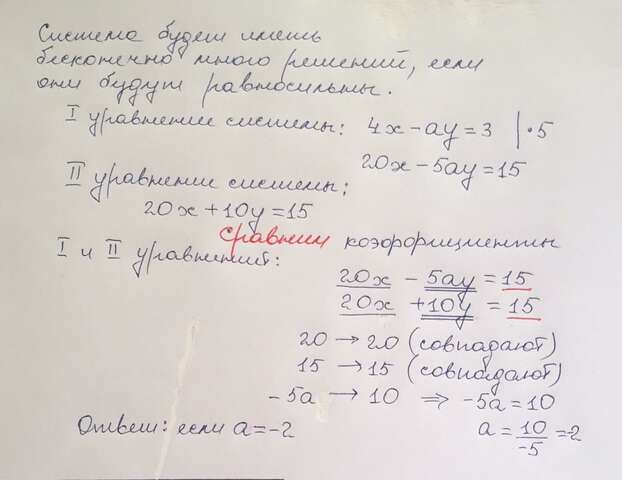 Система будет иметь
бесконечно много решений, если
они будут равносильны.
I уравнение системы: 4x - ay = 3 | · 5
20x - 5ay = 15
II уравнение системы:
20x + 10y = 15
Сравним коэффициенты
I и II уравнений:
20x - 5ay = 15
20x + 10y = 15
20 → 20 (совпадают)
15 → 15 (совпадают)
- 5a → 10 ⇒ -5a = 10
Ответ: если a = -2
a = 10/-5 = -2